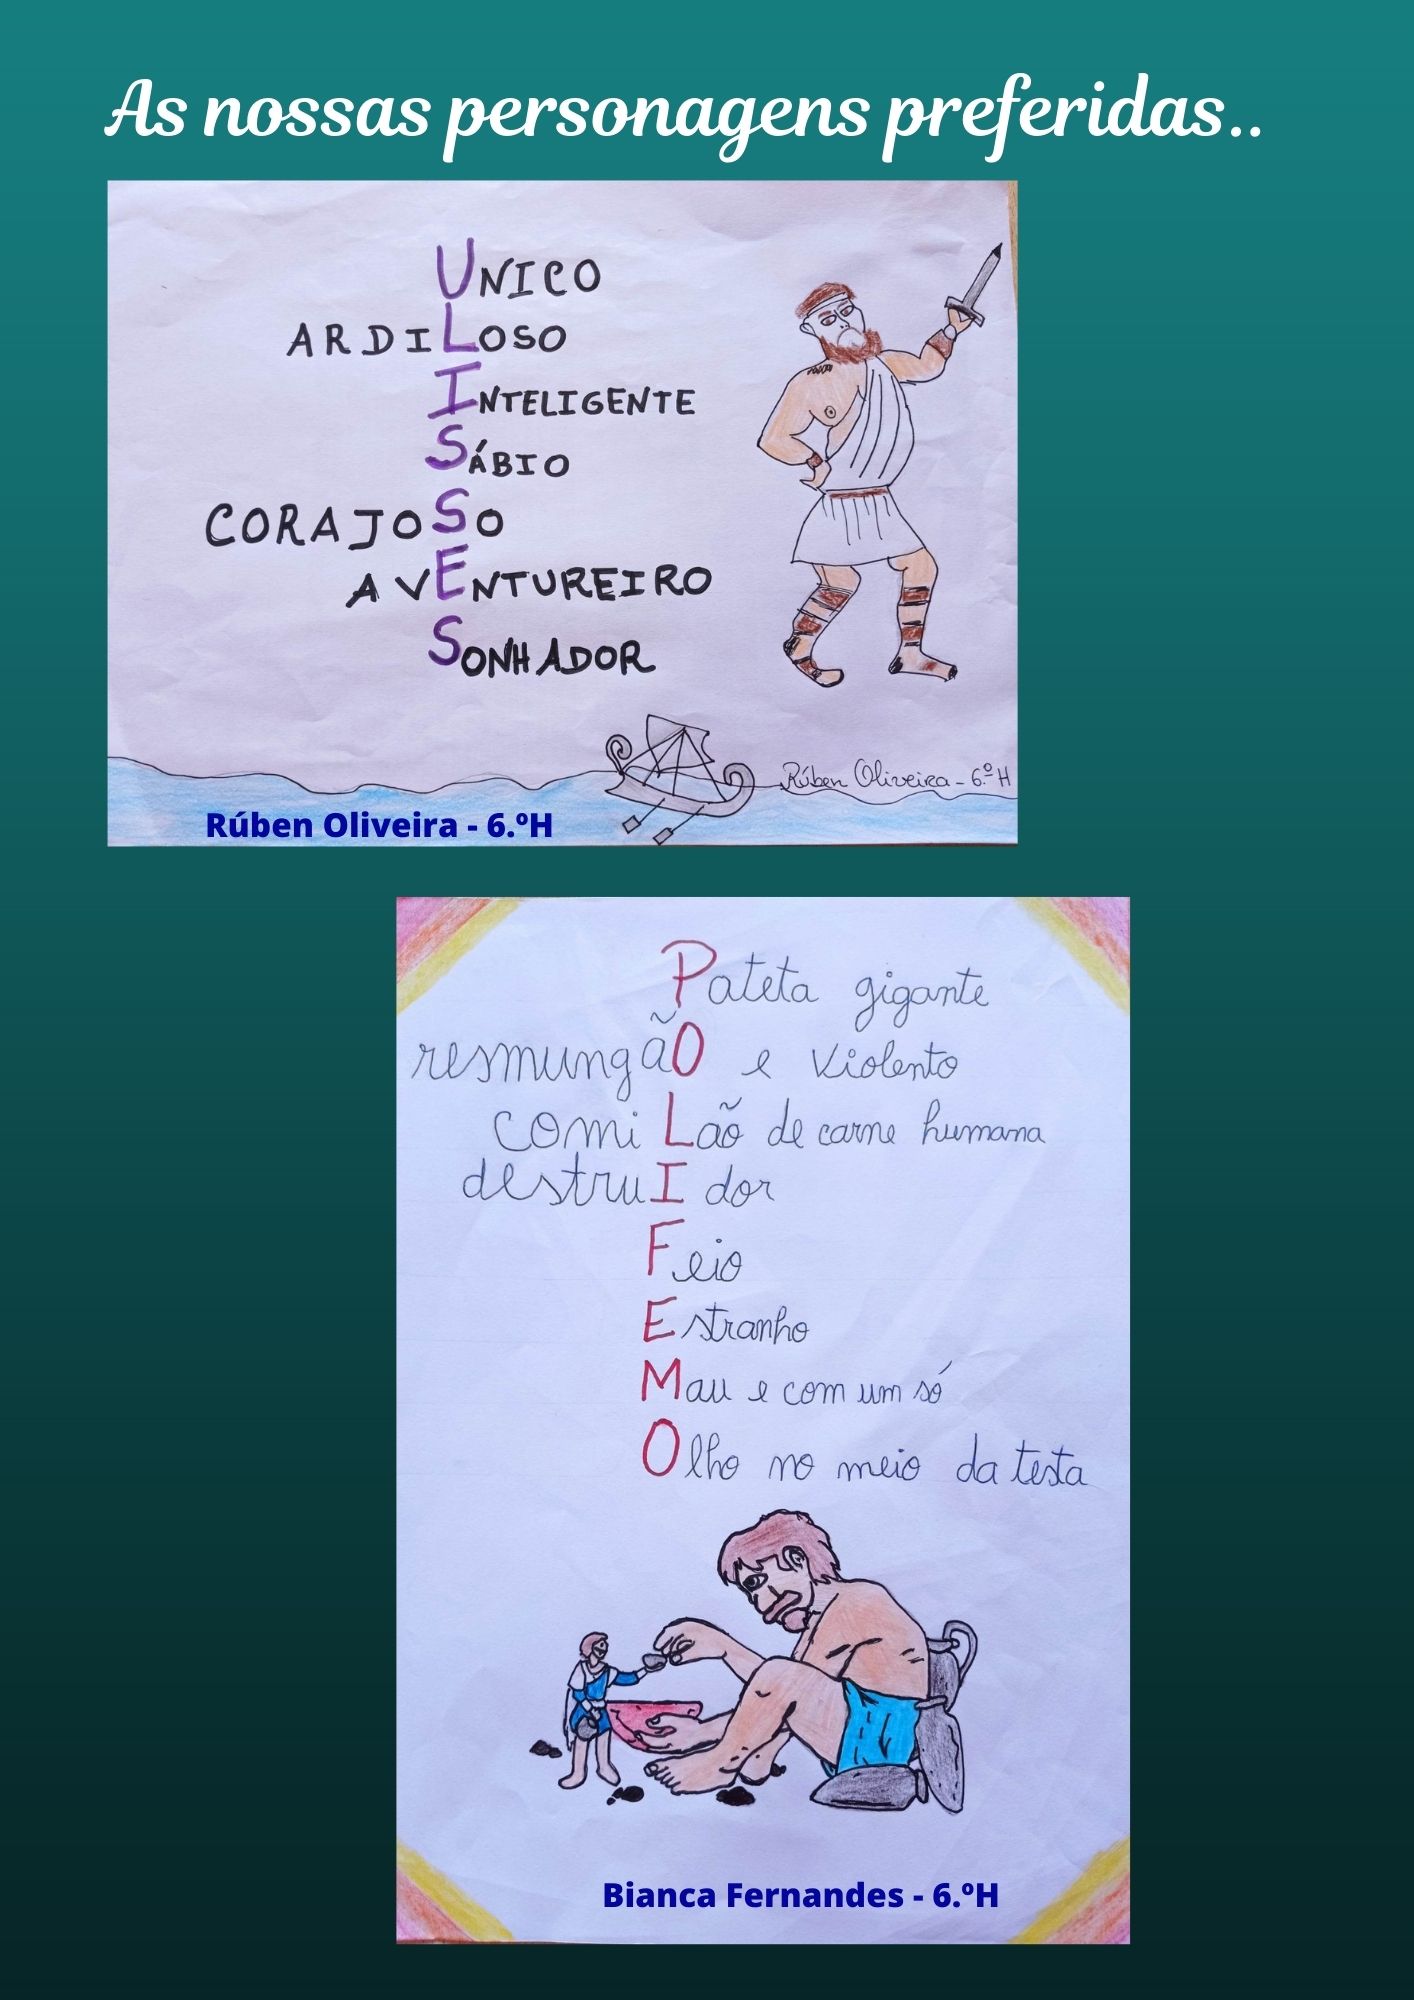 As nossas personagens preferidas..
UNICO
ARDILOSO
INTELIGENTE
SÁBIO
CORAJOSO
AVENTUREIRO
SONHADOR
Rúben Oliveira - 6.º H
Rúben Oliveira - 6.ºH
Pateta gigante
resmungãO e violento
comiLão de carne humana
destruIdor
Feio
Estranho
Mau e com um só
Olho no meio da testa
Bianca Fernandes - 6.ºH